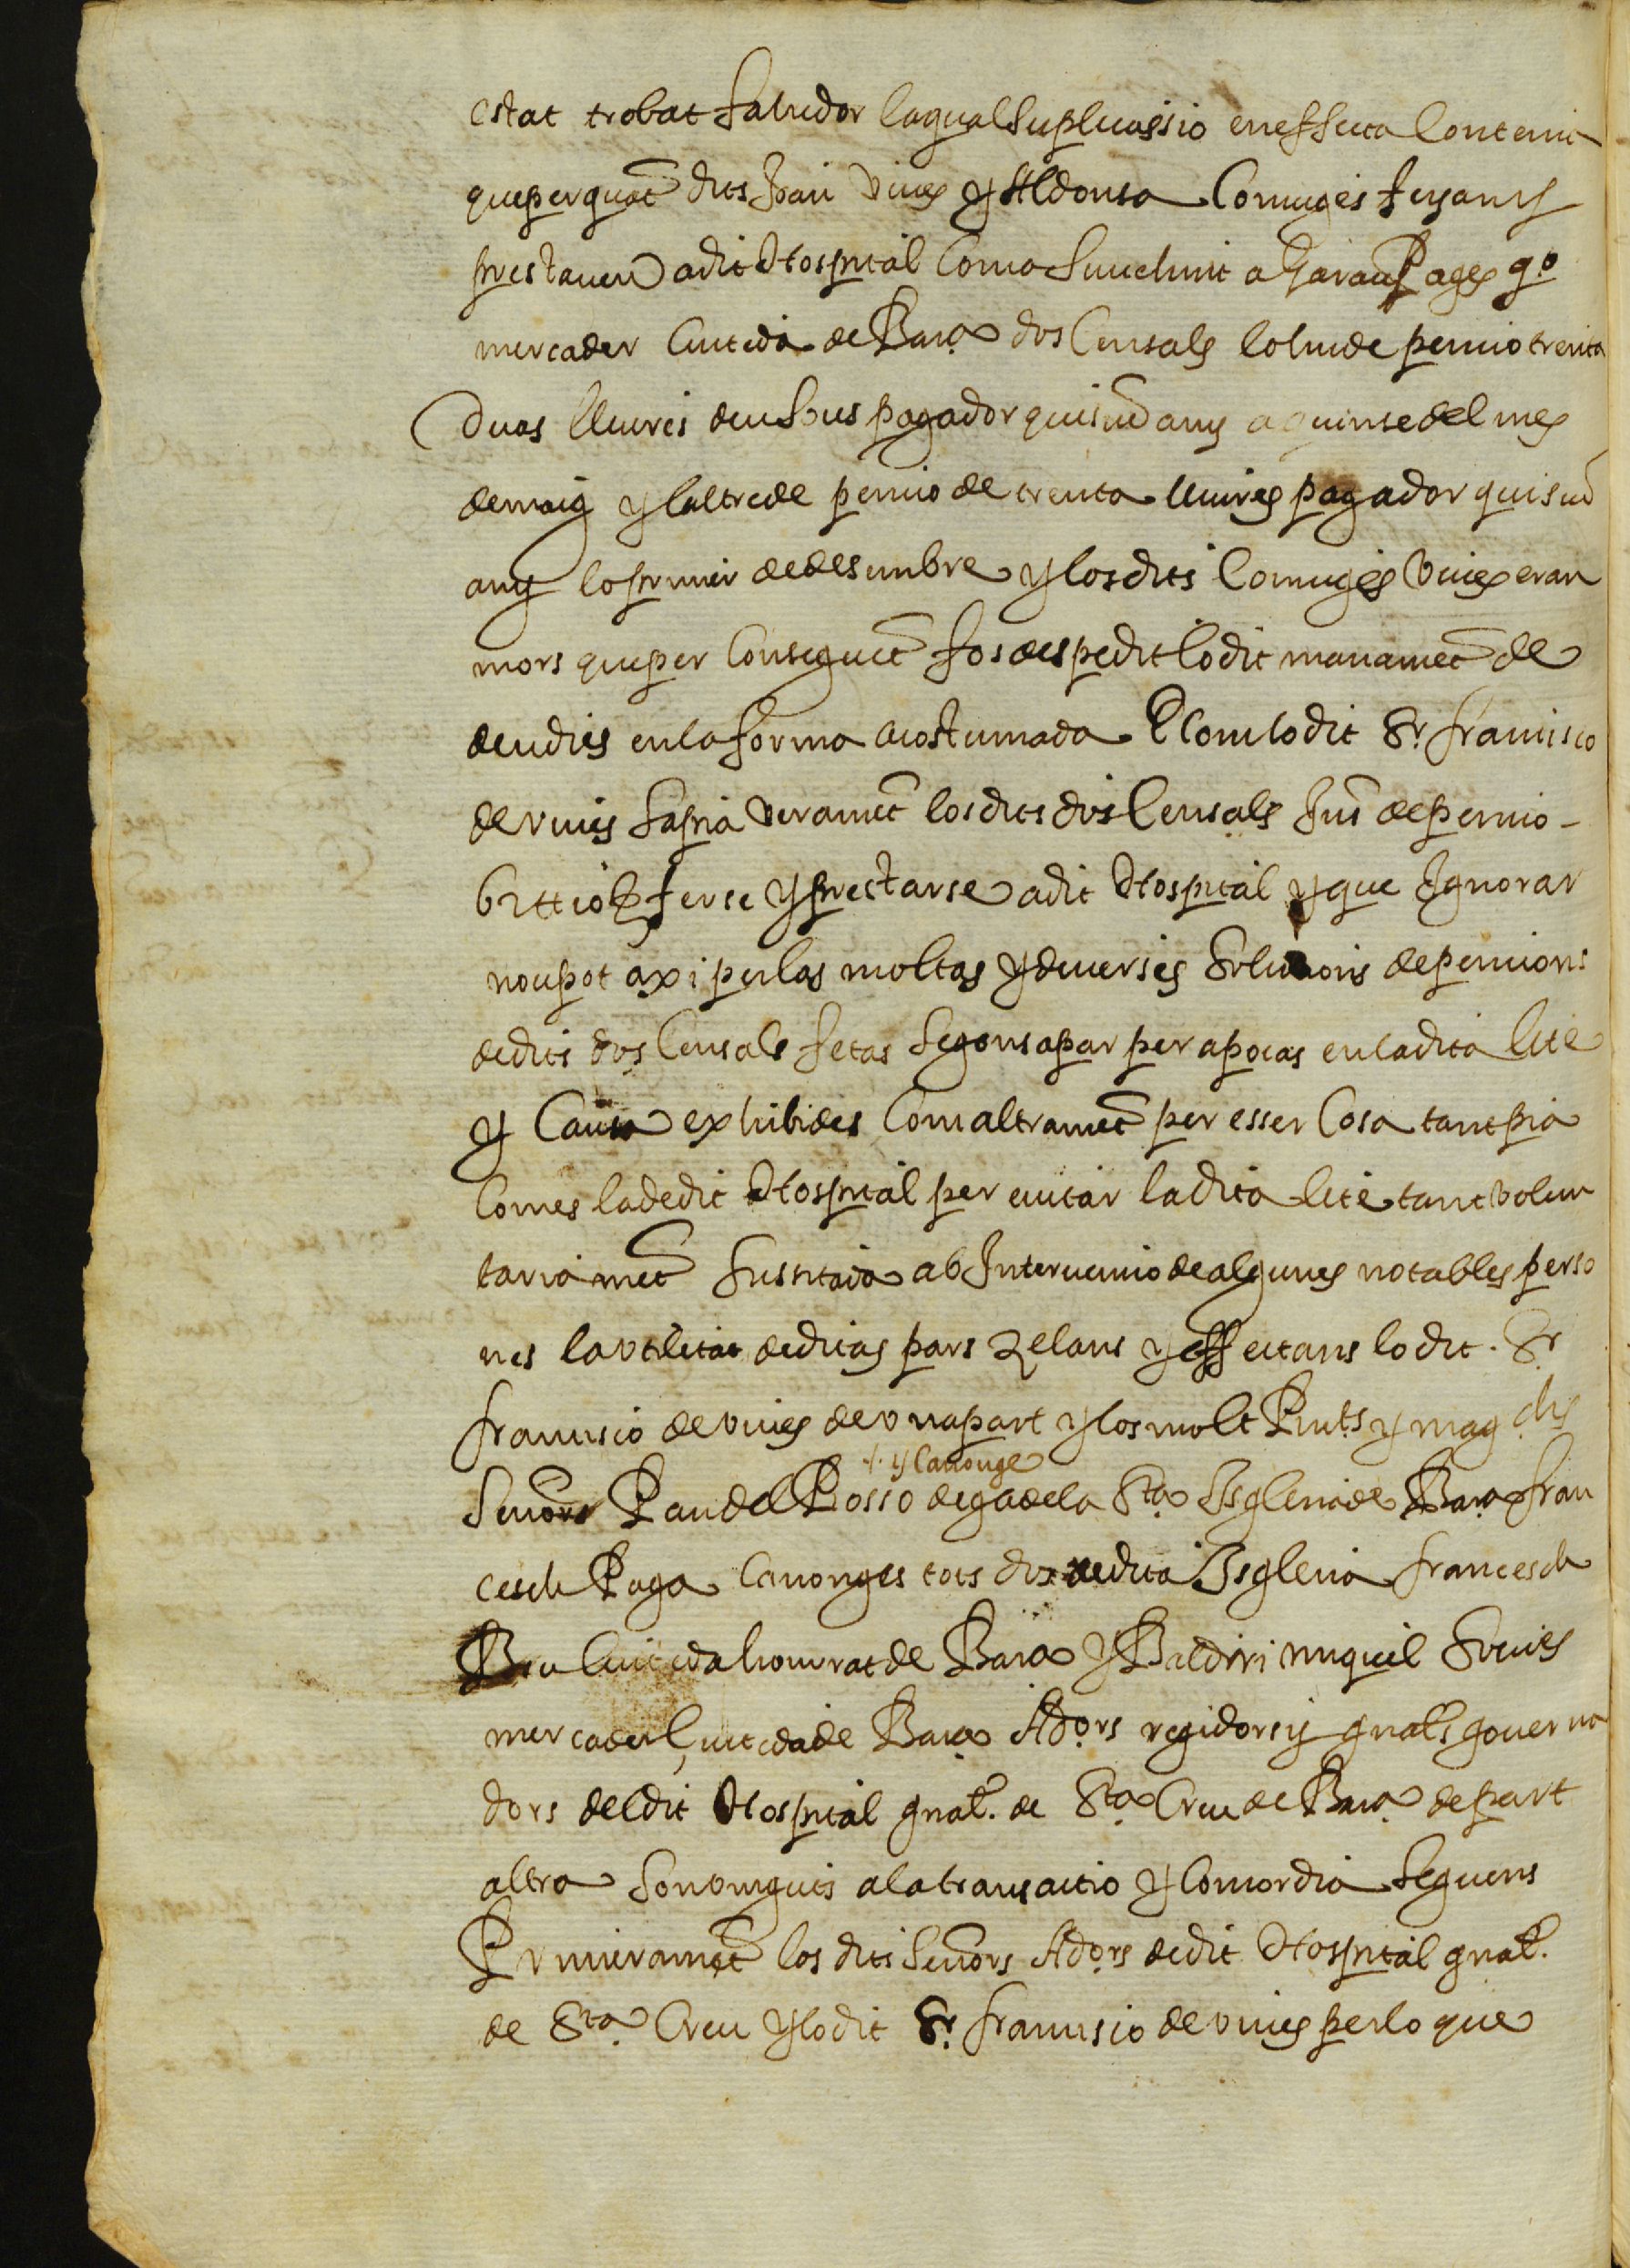 estat trobat fahedor la qual suplicassio en effecta contenia
que per quāt dits Joan Viues y Aldonsa Coniuges feyan y
prestauen a dit Hospital com a succehint a Garau Pages qo
mercader Ciutedà de Bara dos Censals lo hu de pencio trenta
duas lliures deu sous pagador quiscū any a quinse del mes
de maig y laltre de pencio de trenta lliures pagador quiscū
any lo primer de desembre y los dits Coniuges Viues eran
mors que per conseguēt fos despedit lo dit manamēt de
deu dies en la forma acostumada E Com lo dit Sr francisco
de viues sapia veramēt los dits dos Censals de pencio
ferse y prestarse a dit Hospital y que Ignorar
nou pot axi per las moltas y diuerses Solucions de pencions
de dits dos Censals fetas segons apar per apocas en la dita lite
y Causa exhibides Com altramēt per esser Cosa tant pia
Com es la de dit Hospital per euitar la dita lite tant volun
tariamēt sussitada ab Interuencio de algunes notables perso
nes la vtilitat de ditas pars zelans y effectans lo dit Sr
francisco de viues de vna part y los molt Rnts y magchs
Senōrs Pau del Rosso dega ⁒ y Canonge de la Sta Isglesia de Bara fran
cesch Puga Canonges tots dos de dita Isglesia francesch
Bru Ciutedà honrrat de Bara y Baldiri miquel
mercader Ciutedà de Bara Adors regidors y gnals gouerna
dors del dit Hospital gnal. de Sta Creu de Bara de part
altra son vinguts a la transactio y Concordia seguens
Primeramēt los dits Senōrs Adors de dit Hospital gnal.
de Sta Creu y lo dit Sr francisco de viues per lo que